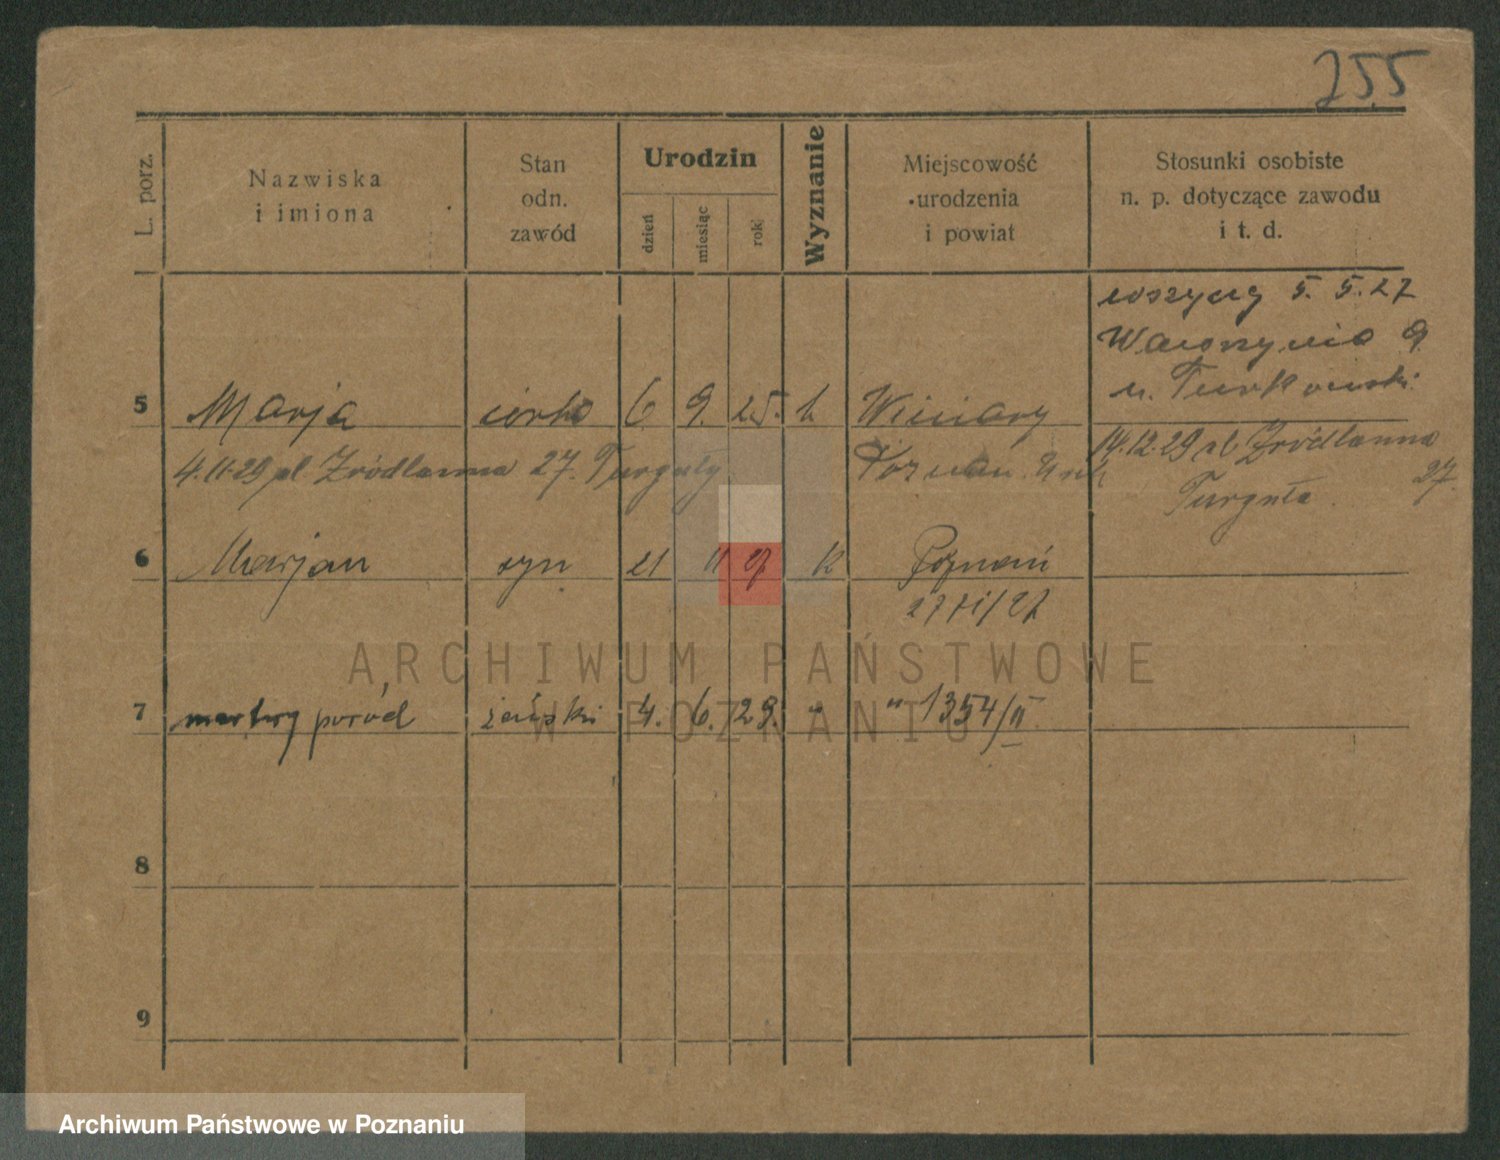 255
L. porz.
Nazwiska
i imiona
Stan
odn.
zawód
Urodzin
dzień
miesiąc
rok
Wyznanie
Miejscowość
urodzenia
i powiat
Stosunki osobiste
n. p. dotyczące zawodu
i t. d.
wszyscy 5. 5. 27
Wawrzyniec 9
u. Turkowski
5 Marja córka 6. 9. 25. k Winiary
4.11.29 pl Źródlanna 27. Turguły Poznań
14.12.29 pl Źródlanna
27.
Turguła.
6 Marjan syn 21 11 27 k Poznań
27/XI/27
7 martwy poród żeński 4. 6. 29. " " 1354/II
8
9
ARCHIWUM PAŃSTWOWE
W POZNANIU
Archiwum Państwowe w Poznaniu